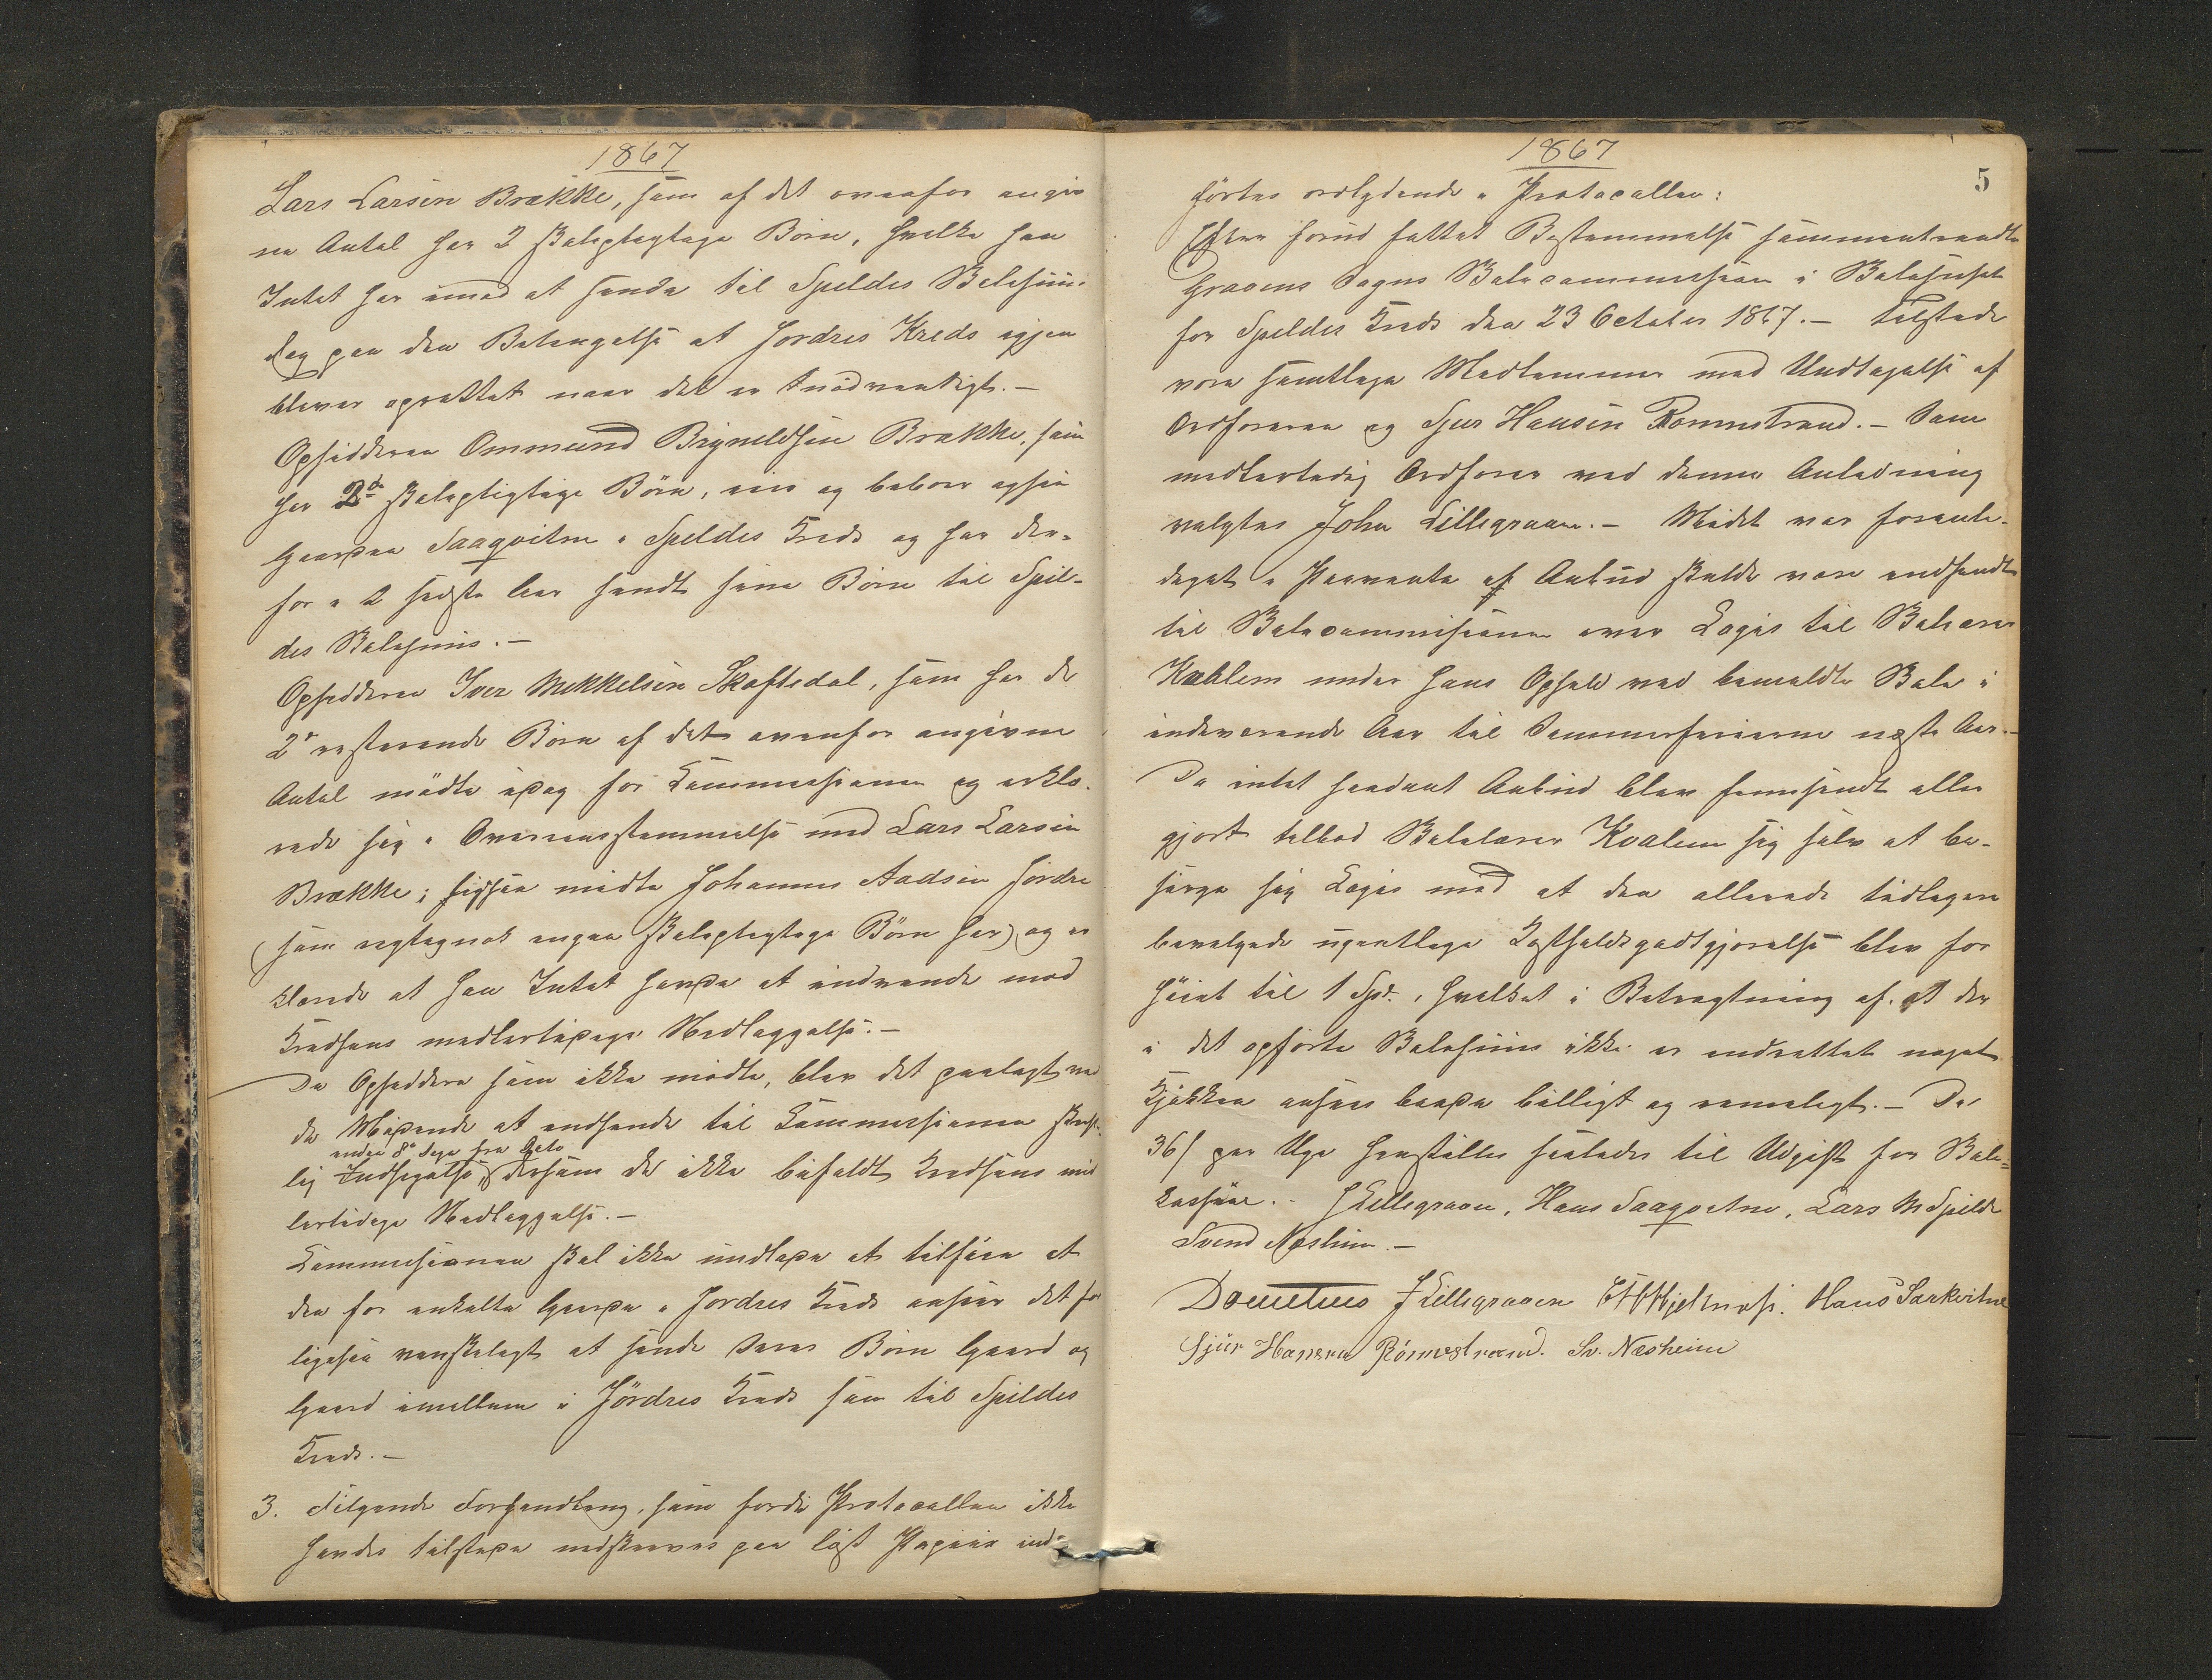 1867
Lars Larsen Brække, som af det ovenfor angiv
ne Antal har 2 skolepligtige Börn, hvilke han
Intet har imod at sende til Spildes Skolehuus
dog paa den Betingelse at Jordres Kreds igjen
bliver oprettet naar det er tnödvendigt. –
Opsidderen Ommund Brynildsen Brække, som
har 2de skolepligtige Börn, eier og beboer ogsaa
Gaarden Saaqvitne i Spildes Kreds og har der-
for i 2 sidste Aar sendt sine Börn til Spil-
des Skolehuus. –
Opsidderen Iver Mikkelsen Skaftedal, som har de
2de resterende Börn af det ovenfor angivne
Antal mödte idag for Commissionen og erklæ-
rede sig i Overeensstemmelse med Lars Larsen
Brække; ligesaa mödte Johannes Aadsen Jördre
(som rigtignok ingen skolepligtige Börn har) og er
klærede at han Intet havde at indvende mod
Kredsens midlertidige Nedlæggelse. –
De Opsiddere som ikke mödte, blev det paalagt ved
de Mödende at indsende til Commissionen skrift-
inden 8te Dage fra Dato
lig Indsigelse, dersom de ikke bifaldt Kredsens mid
lertidige Nedlæggelse. –
Commissionen skal ikke undlade at tilföie at
den for enkelte Gaarde i Jordres Kreds ansaaer det for
ligesaa vanskeligt at sende deres Börn Gaard og
Gaard imellem i Jördres Kreds som til Spildes
Kreds. –
3. Fölgende Forhandling, som fordi Protocollen ikke
havdes tilstede nedskreves paa löst Papiir ind-
1867
5
förtes ordlydende i Protocollen:
Efter forud fattet Bestemmelse sammentraadte
Gravens Sogns Skolecommission i Skolehuset
for Spildes Kreds den 23 October 1867. – Tilstede
vare samtlige Medlemmer med Undtagelse af
Ordföreren og Sjur Hansen Rönnestrand. – Som
midlertidig Ordförer ved denne Anledning
valgtes John Lillegraven. – Mödet var foranle-
diget i Parvente af Anbud skulde være indsendt
til Skolecommissionen over Logis til Skolelærer
Kvalem under hans Ophold ved bemeldte Skole i
indeværende Aar til Sommerferierne næste Aar. –
Da intet saadant Anbud blev fremsendt eller
gjort tilböd Skolelærer Kvalem sig selv at be-
sörge sig Logis mod at den allerede tidligere
bevilgede ugentlige Kostholdsgodtgjörelse blev for
höiet til 1 Spd., hvilket i Betragtning af at der
i det opförte Skolehuus ikke er indrettet noget
Kjökken ansaaes baade billigt og rimeligt. – De
36 ß per Uge henstilles saaledes til Udgift for Skole-
kassen. – J Lillegraven, Hans Saaqvitne, Lars M Spilde
Svend Næsheim. –
Dometius J Lillegraven Hjeltnæs. Hans Sarkvitne
Sjür Hansen Rönnestrand. Sv. Næsheim